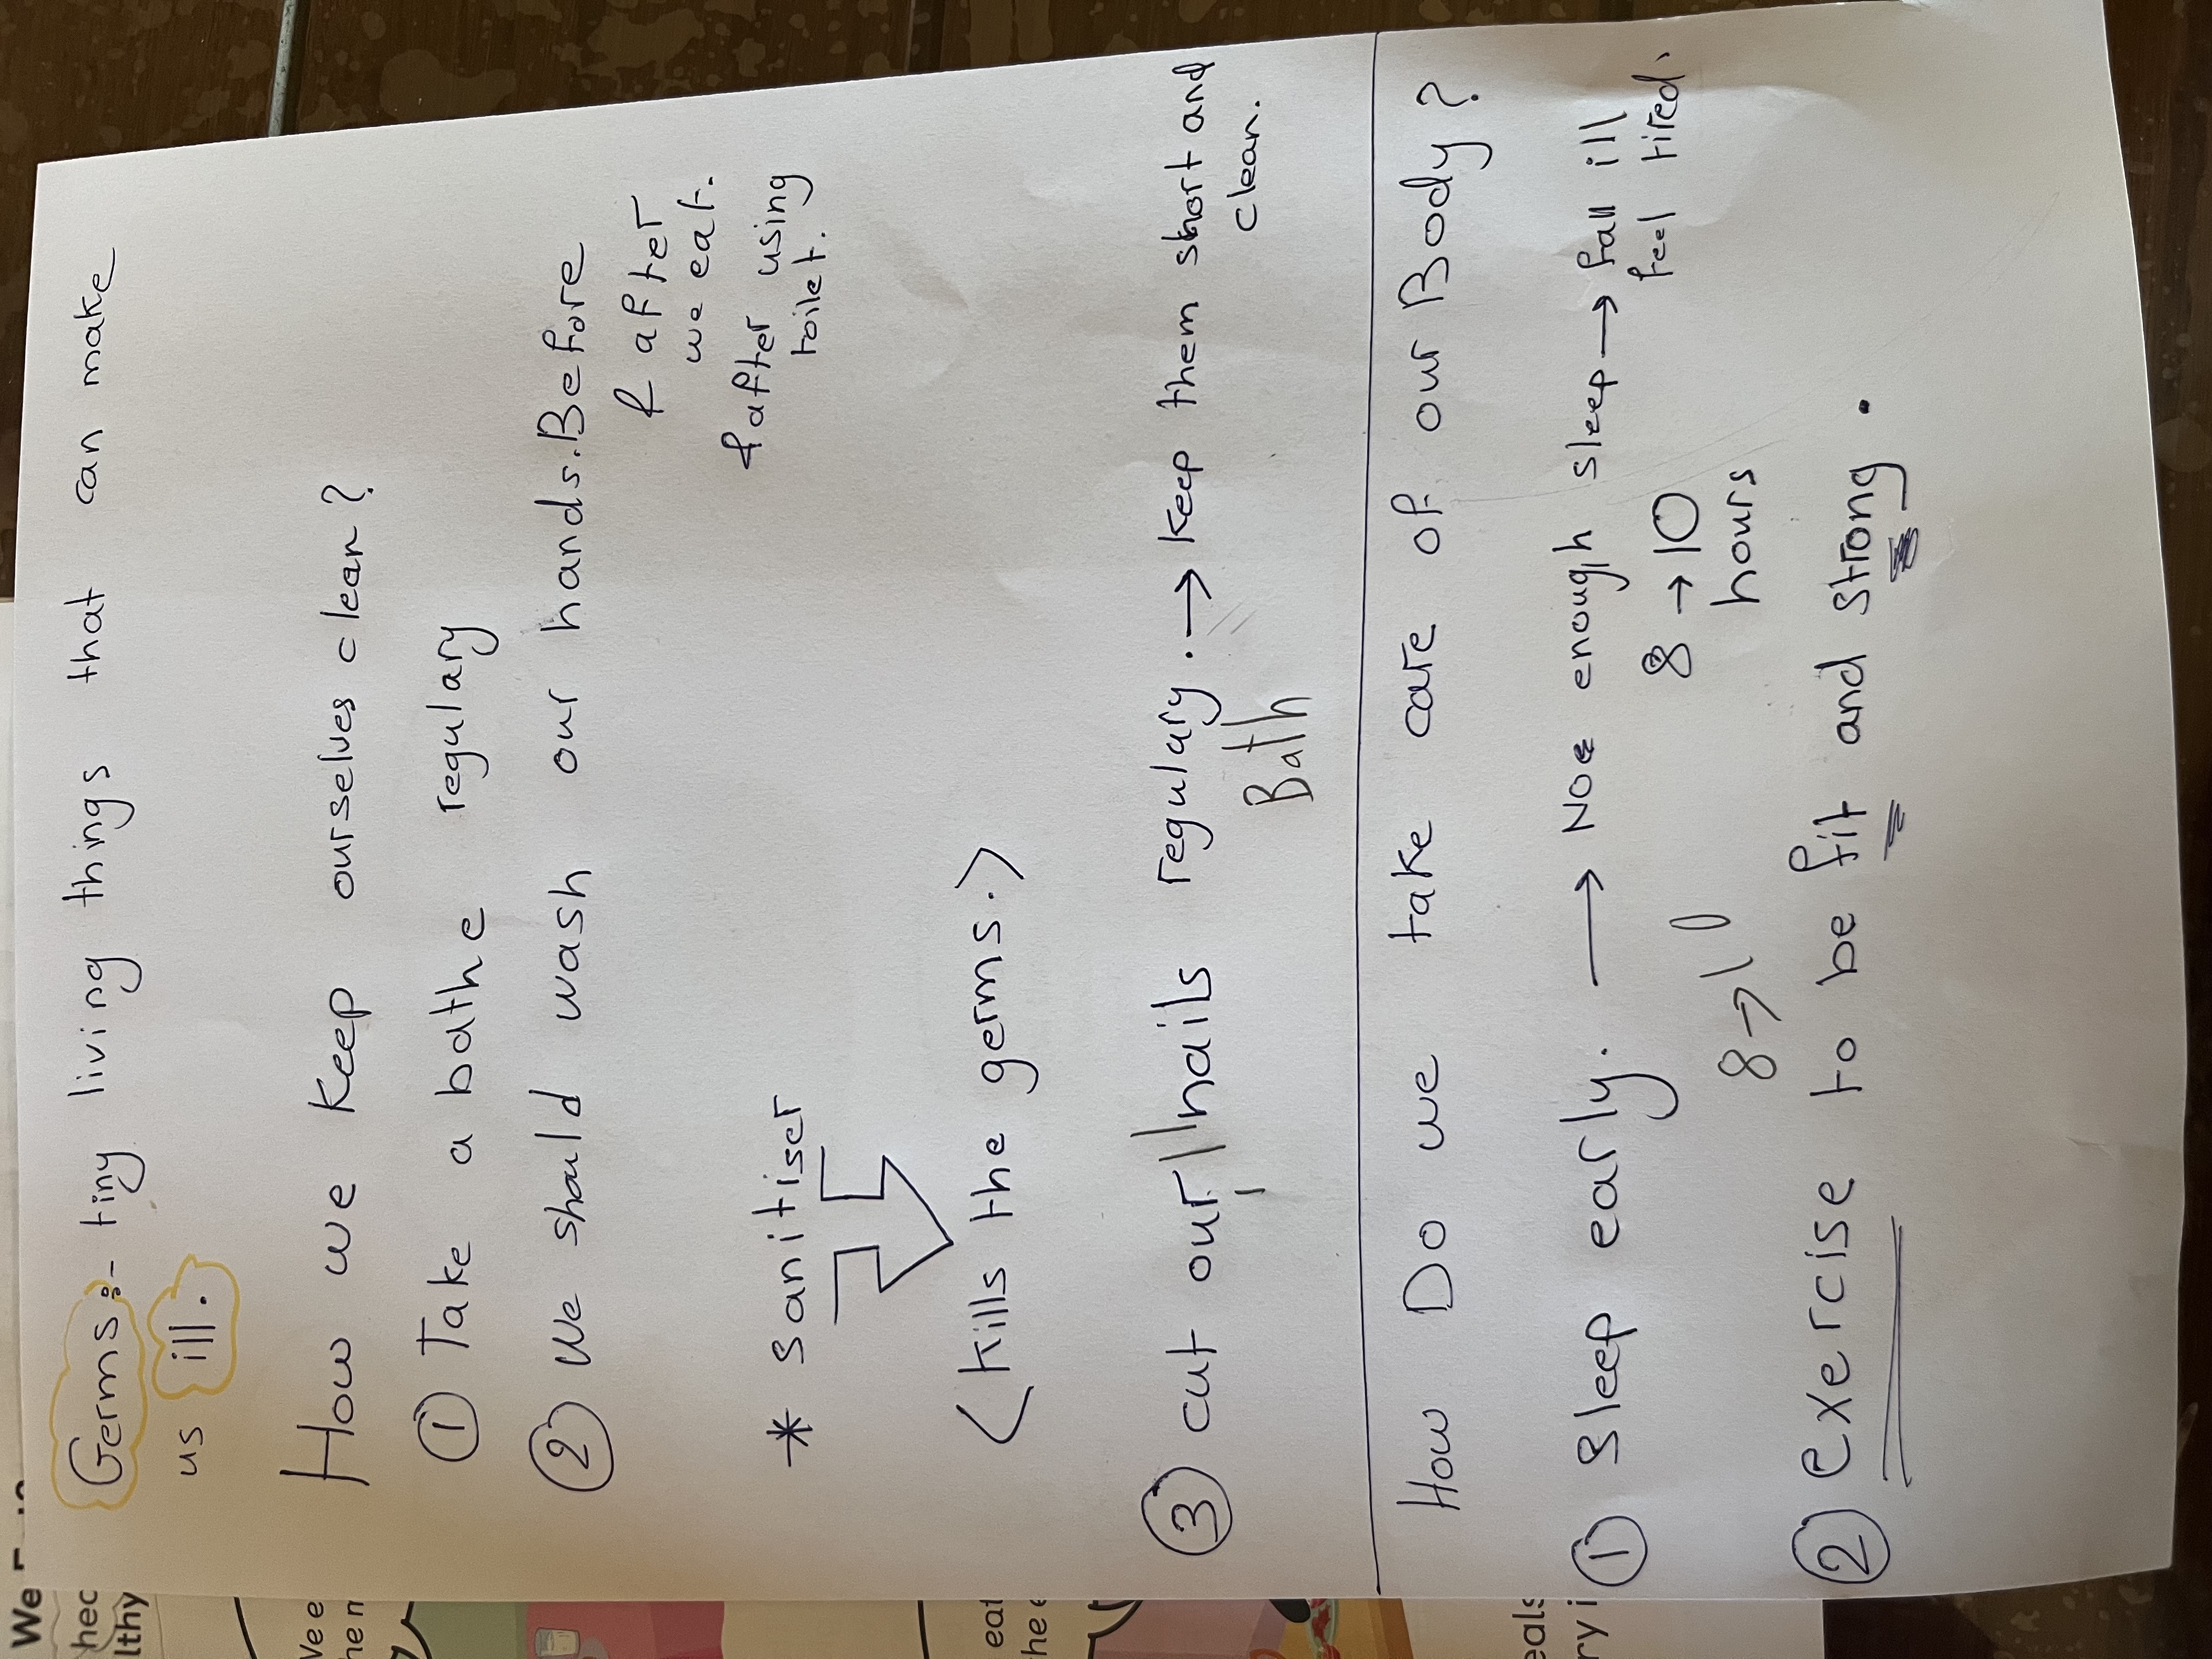 Germs:- tiny living things that can make
us ill.
How we keep ourselves clean?
① Take a bathe regulary
② We should wash our hands. Before
& after
we eat.
& after using
toilet.
* Sanitiser
<kills the germs.>
③ cut our nails regulary. → keep them short and
clean.
Bath
How Do we take care of our Body?
① Sleep early. → Not enough sleep → fall ill
feel tired.
8 → 10
hours
8 → 10
② exercise to be fit and strong.
We
hec
lthy
We e
hen
eat
the e
eals
ry i